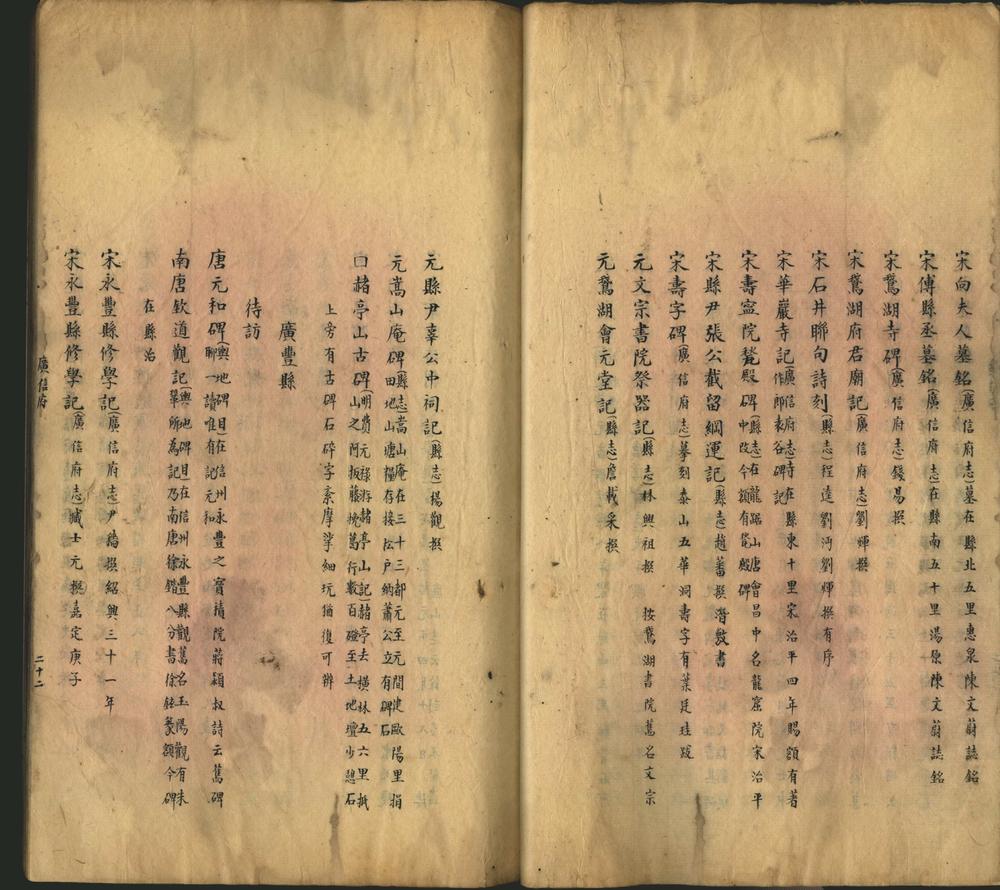 宋向夫人墓銘(廣信府志)墓在縣北五里惠泉陳文蔚誌銘
宋傅縣丞墓銘(廣信府志)在縣南五十里湯原陳文蔚誌銘
宋鵞湖寺碑(廣信府志)錢易撰
宋鵞湖府君廟記(廣信府志)劉煇撰
宋石井聯句詩刻(縣志)程逵劉沔劉煇撰有序
宋華巖寺記(廣信府志)寺在縣東十里宋治平四年賜額有著作郎袁谷碑記
宋壽寍院甃殿碑(縣志)在龍踞山唐會昌中名龍窟院宋治平中改今額有甃殿碑
宋縣尹張公截留綱運記(縣志)趙蕃撰潛敷書
宋壽字碑(廣信府志)摹刻泰山五華洞壽字有葉廷珪跋
元文宗書院祭器記(縣志)林興祖撰 按鵞湖書院舊名文宗
元鵞湖會元堂記(縣志)詹載采撰
元縣尹辜公中祠記(縣志)楊觀撰
元嵩山庵碑(縣志)嵩山庵在三十三都元至元間建歐陽里捐田地山塘糧存接坛户納蕭公立有碑石
口赭亭山古碑(明費元祿游赭亭山記)赭亭去橫林五六里抵山之阿扳藤挽葛行數百磴至土地壇少憩石
上旁有古碑石碎字紊摩挲細玩猶復可辨
廣豐縣
待訪
唐元和碑(輿地碑目)在信州永豐之寶積院蔣穎叔詩云舊碑聊一讀唯有記元和
南唐欽道觀記(輿地碑目)在信州永豐縣觀舊名玉陽觀有朱葦所為記乃南唐徐鍇八分書徐鉉篆額今碑
在縣治
宋永豐縣修學記(廣信府志)尹穡撰紹興三十一年
宋永豐縣修學記(廣信府志)臧士元撰嘉定庚子
廣信府
二十二